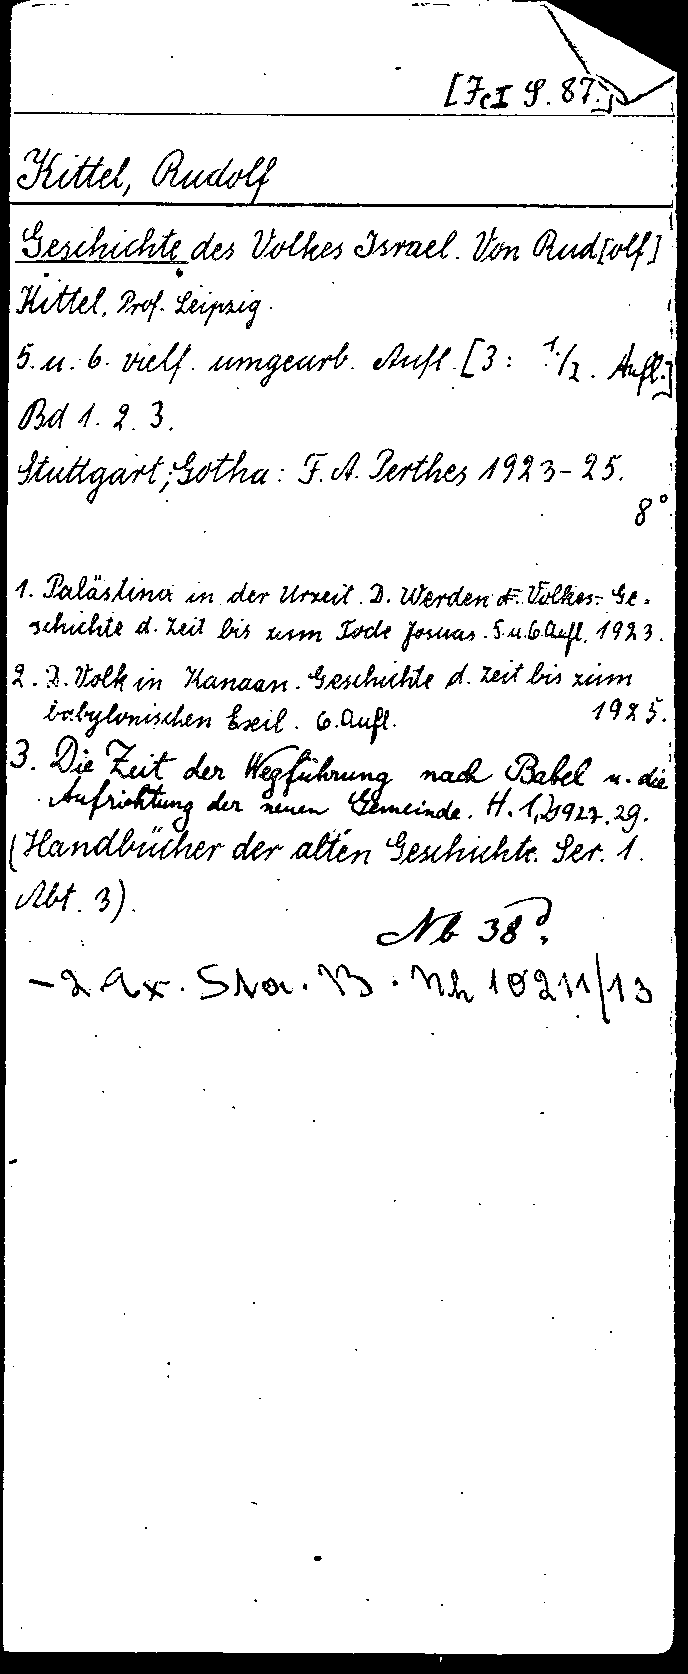 [F.I S. 87.]
Kittel, Rudolf
Geschichte des Volkes Israel. Von Rud[olf]
Kittel, Prof. Leipzig.
5. u. 6. vielf. umgearb. Aufl. [3: 1./2. Aufl.]
Bd 1. 2. 3.
Stuttgart; Gotha: F. A. Perthes 1923-25.
8°
1. Palästina in der Urzeit. D. Werden d. Volkes. Ge-
schichte d. Zeit bis zum Tode Josuas. 5.u.6.Aufl. 1923.
2. D. Volk in Kanaan. Geschichte d. Zeit bis zum
babylonischen Exil. 6. Aufl. 1925.
3. Die Zeit der Wegführung nach Babel u. die
Aufrichtung der neuen Gemeinde. H. 1,2 1927. 29.
(Handbücher der alten Geschichte. Ser. 1.
Abt. 3).
Nb 38
- 2 Ex. 10211/13